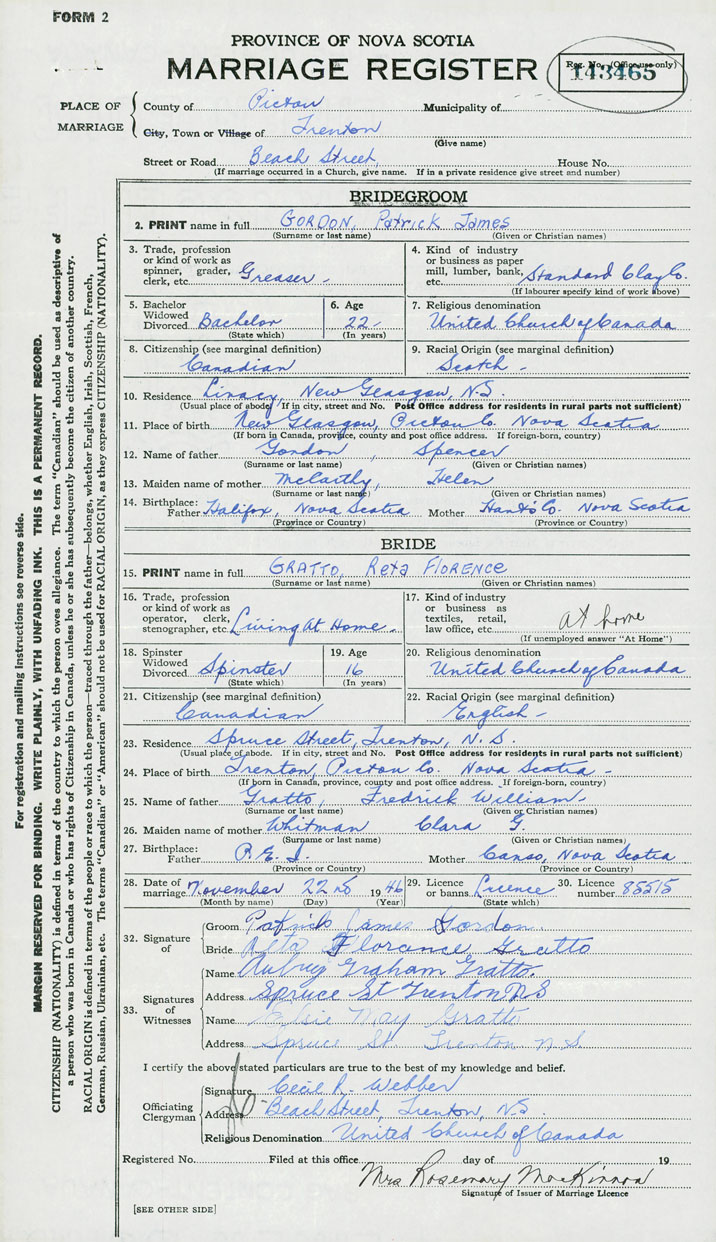 FORM 2
PROVINCE OF NOVA SCOTIA
MARRIAGE REGISTER
Reg. No. (Office use only)
143465
PLACE OF MARRIAGE
County of Pictou Municipality of
City, Town or Village of Trenton
(Give name)
Street or Road Beach Street, House No.
(If marriage occurred in a Church, give name. If in a private residence give street and number)
BRIDEGROOM
2. PRINT name in full GORDON, Patrick James
(Surname or last name) (Given or Christian names)
3. Trade, profession or kind of work as spinner, grader, clerk, etc. Greaser -
4. Kind of industry or business as paper mill, lumber, bank, etc. Standard Clay Co.
(If labourer specify kind of work above)
5. Bachelor Widowed Divorced Bachelor
(State which)
6. Age 22-
(In years)
7. Religious denomination
United Church of Canada
8. Citizenship (see marginal definition)
Canadian
9. Racial Origin (see marginal definition)
Scotch -
10. Residence Linacy, New Glasgow, N.S.
(Usual place of abode. If in city, street and No. Post Office address for residents in rural parts not sufficient)
11. Place of birth New Glasgow, Pictou Co. Nova Scotia
(If born in Canada, province, county and post office address. If foreign-born, country)
12. Name of father Gordon, Spencer
(Surname or last name) (Given or Christian names)
13. Maiden name of mother McCarthy, Helen
(Surname or last name) (Given or Christian names)
14. Birthplace: Father Halifax, Nova Scotia Mother Hants Co. Nova Scotia
(Province or Country) (Province or Country)
BRIDE
15. PRINT name in full GRATTO, Reta FLORENCE
(Surname or last name) (Given or Christian names)
16. Trade, profession or kind of work as operator, clerk, stenographer, etc. Living At Home -
17. Kind of industry or business as textiles, retail, law office, etc. at home
(If unemployed answer "At Home")
18. Spinster Widowed Divorced Spinster
(State which)
19. Age 16
(In years)
20. Religious denomination
United Church of Canada
21. Citizenship (see marginal definition)
Canadian
22. Racial Origin (see marginal definition)
English -
23. Residence Spruce Street, Trenton, N.S.
(Usual place of abode. If in city, street and No. Post Office address for residents in rural parts not sufficient)
24. Place of birth Trenton, Pictou Co. Nova Scotia -
(If born in Canada, province, county and post office address. If foreign-born, country)
25. Name of father Gratto, Fredrick William -
(Surname or last name) (Given or Christian names)
26. Maiden name of mother Whitman Clara G.
(Surname or last name) (Given or Christian names)
27. Birthplace: Father P.E.I. Mother Canso, Nova Scotia
(Province or Country) (Province or Country)
28. Date of marriage November 22nd 1946
(Month by name) (Day) (Year)
29. Licence or banns Licence
(State which)
30. Licence number 85515
32. Signature of
Groom Patrick James Gordon
Bride Reta Florance Gratto
33. Signatures of Witnesses
Name Aubrey Graham Gratto.
Address Spruce St Trenton NS
Name Elsie May Gratto
Address Spruce St Trenton n.S
I certify the above stated particulars are true to the best of my knowledge and belief.
Officiating Clergyman
Signature Cecil R. Webber
Address Beach Street, Trenton, N.S.
Religious Denomination United Church of Canada
Registered No. Filed at this office day of 19
Mrs Rosemary MacKinnon
Signature of Issuer of Marriage Licence
[SEE OTHER SIDE]
For registration and mailing instructions see reverse side.
MARGIN RESERVED FOR BINDING. WRITE PLAINLY, WITH UNFADING INK. THIS IS A PERMANENT RECORD.
CITIZENSHIP (NATIONALITY) is defined in terms of the country to which the person owes allegiance. The term "Canadian" should be used as descriptive of
a person who was born in Canada or who has rights of Citizenship in Canada, unless he or she has subsequently become the citizen of another country.
RACIAL ORIGIN is defined in terms of the people or race to which the person—traced through the father—belongs, whether English, Irish, Scottish, French,
German, Russian, Ukrainian, etc. The terms "Canadian" or "American" should not be used for RACIAL ORIGIN, as they express CITIZENSHIP (NATIONALITY).